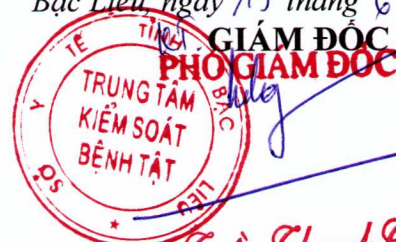 Bạc Liêu, ngày 15 tháng 6
KT. GIÁM ĐỐC
PHÓ GIÁM ĐỐC
SỞ Y TẾ TỈNH BẠC LIÊU
TRUNG TÂM
KIỂM SOÁT
BỆNH TẬT